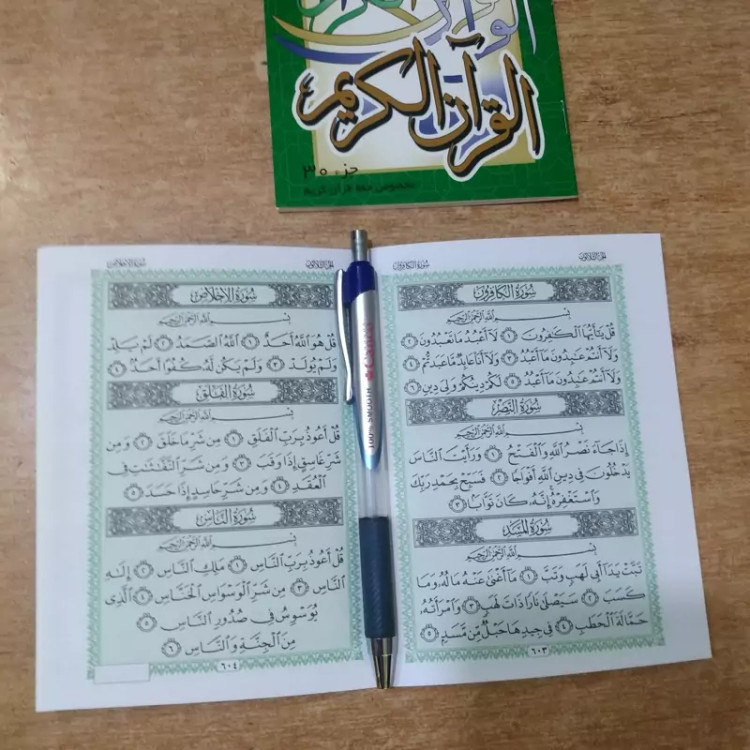 القرآن الكريم
جزء ٣٠
الجزء الثلاثون
سورة الكافرون
سُورَةُ الكَافِرُونَ
بِسْمِ اللَّهِ الرَّحْمَٰنِ الرَّحِيمِ
قُلْ يَٰٓأَيُّهَا ٱلْكَٰفِرُونَ ١ لَآ أَعْبُدُ مَا تَعْبُدُونَ ٢
وَلَآ أَنتُمْ عَٰبِدُونَ مَآ أَعْبُدُ ٣ وَلَآ أَنَا۠ عَابِدٌ مَّا عَبَدتُّمْ ٤
وَلَآ أَنتُمْ عَٰبِدُونَ مَآ أَعْبُدُ ٥ لَكُمْ دِينُكُمْ وَلِيَ دِينِ ٦
سُورَةُ النَّصْرِ
بِسْمِ اللَّهِ الرَّحْمَٰنِ الرَّحِيمِ
إِذَا جَآءَ نَصْرُ ٱللَّهِ وَٱلْفَتْحُ ١ وَرَأَيْتَ ٱلنَّاسَ
يَدْخُلُونَ فِي دِينِ ٱللَّهِ أَفْوَاجًا ٢ فَسَبِّحْ بِحَمْدِ رَبِّكَ
وَٱسْتَغْفِرْهُ إِنَّهُۥ كَانَ تَوَّابًۢا ٣
سُورَةُ المَسَدِ
بِسْمِ اللَّهِ الرَّحْمَٰنِ الرَّحِيمِ
تَبَّتْ يَدَآ أَبِي لَهَبٍ وَتَبَّ ١ مَآ أَغْنَىٰ عَنْهُ مَالُهُۥ وَمَا
كَسَبَ ٢ سَيَصْلَىٰ نَارًا ذَاتَ لَهَبٍ ٣ وَٱمْرَأَتُهُۥ
حَمَّالَةَ ٱلْحَطَبِ ٤ فِي جِيدِهَا حَبْلٌ مِّن مَّسَدٍۭ ٥
٦٠٣
الجزء الثلاثون
سورة الإخلاص
سُورَةُ الإِخْلَاصِ
بِسْمِ اللَّهِ الرَّحْمَٰنِ الرَّحِيمِ
قُلْ هُوَ ٱللَّهُ أَحَدٌ ١ ٱللَّهُ ٱلصَّمَدُ ٢ لَمْ يَلِدْ
وَلَمْ يُولَدْ ٣ وَلَمْ يَكُن لَّهُۥ كُفُوًا أَحَدٌۢ ٤
سُورَةُ الفَلَقِ
بِسْمِ اللَّهِ الرَّحْمَٰنِ الرَّحِيمِ
قُلْ أَعُوذُ بِرَبِّ ٱلْفَلَقِ ١ مِن شَرِّ مَا خَلَقَ ٢ وَمِن
شَرِّ غَاسِقٍ إِذَا وَقَبَ ٣ وَمِن شَرِّ ٱلنَّفَّٰثَٰتِ فِي
ٱلْعُقَدِ ٤ وَمِن شَرِّ حَاسِدٍ إِذَا حَسَدَ ٥
سُورَةُ النَّاسِ
بِسْمِ اللَّهِ الرَّحْمَٰنِ الرَّحِيمِ
قُلْ أَعُوذُ بِرَبِّ ٱلنَّاسِ ١ مَلِكِ ٱلنَّاسِ ٢ إِلَٰهِ
ٱلنَّاسِ ٣ مِن شَرِّ ٱلْوَسْوَاسِ ٱلْخَنَّاسِ ٤ ٱلَّذِي
يُوَسْوِسُ فِي صُدُورِ ٱلنَّاسِ ٥
مِنَ ٱلْجِنَّةِ وَٱلنَّاسِ ٦
٦٠٤
100% SMOOTH